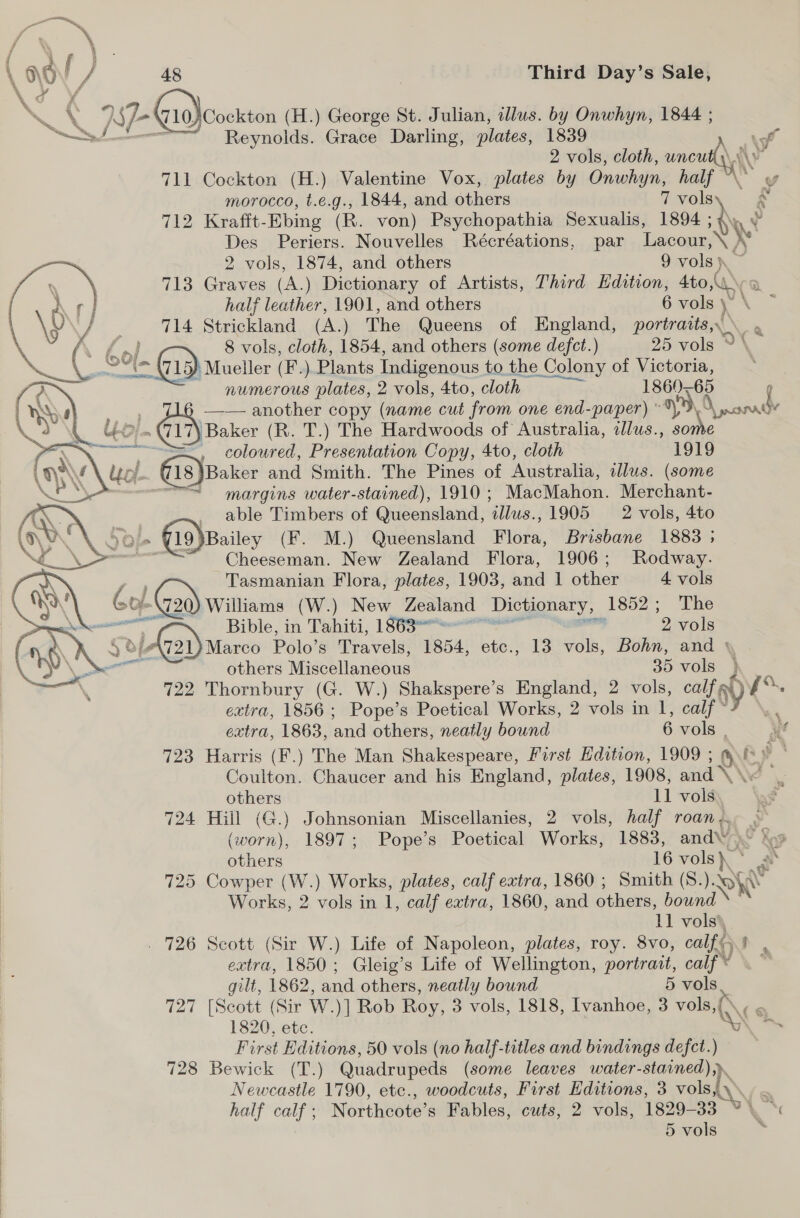 48 Third Day's Sale,
710 Cockton (H.) George St. Julian, illus. by Onwhyn, 1844 ;
Reynolds. Grace Darling, plates, 1839
2 vols, cloth, uncut
711 Cockton (H.) Valentine Vox, plates by Onwhyn, half
morocco, t.e.g., 1844, and others 7 vols
712 Krafft-Ebing (R. von) Psychopathia Sexualis, 1894 ;
Des Periers. Nouvelles Récréations, par Lacour,
2 vols, 1874, and others 9 vols
713 Graves (A.) Dictionary of Artists, Third Edition, 4to,
half leather, 1901, and others 6 vols
714 Strickland (A.) The Queens of England, portraits,
8 vols, cloth, 1854, and others (some defct.) 25 vols
60/- 715 Mueller (F.) Plants Indigenous to the Colony of Victoria,
numerous plates, 2 vols, 4to, cloth 1860-65
716 —— another copy (name cut from one end-paper)
40/- 717 Baker (R. T.) The Hardwoods of Australia, illus., some
coloured, Presentation Copy, 4to, cloth 1919
718 Baker and Smith. The Pines of Australia, illus. (some
margins water-stained), 1910 ; MacMahon. Merchant-
able Timbers of Queensland, illus., 1905 2 vols, 4to
50/- 719 Bailey (F. M.) Queensland Flora, Brisbane 1883 ;
Cheeseman. New Zealand Flora, 1906 ; Rodway.
Tasmanian Flora, plates, 1903, and 1 other 4 vols
60/- 720 Williams (W.) New Zealand Dictionary, 1852 ; The
Bible, in Tahiti, 1863 2 vols
50/- 721 Marco Polo's Travels, 1854, etc., 13 vols, Bohn, and
others Miscellaneous 35 vols
722 Thornbury (G. W.) Shakspere's England, 2 vols, calf
extra, 1856 ; Pope's Poetical Works, 2 vols in 1, calf
extra, 1863, and others, neatly bound 6 vols
723 Harris (F.) The Man Shakespeare, First Edition, 1909 ;
Coulton. Chaucer and his England, plates, 1908, and
others 11 vols
724 Hill (G.) Johnsonian Miscellanies, 2 vols, half roan
(worn), 1897 ; Pope's Poetical Works, 1883, and
others 16 vols
725 Cowper (W.) Works, plates, calf extra, 1860 ; Smith (S.).
Works, 2 vols in 1, calf extra, 1860, and others, bound
11 vols
726 Scott (Sir W.) Life of Napoleon, plates, roy. 8vo, calf
extra, 1850 ; Gleig's Life of Wellington, portrait, calf
gilt, 1862, and others, neatly bound 5 vols
727 [Scott (Sir W.)] Rob Roy, 3 vols, 1818, Ivanhoe, 3 vols,
1820, etc.
First Editions, 50 vols (no half-titles and bindings defct.)
728 Bewick (T.) Quadrupeds (some leaves water-stained),
Newcastle 1790, etc., woodcuts, First Editions, 3 vols,
half calf ; Northcote's Fables, cuts, 2 vols, 1829-33
5 vols